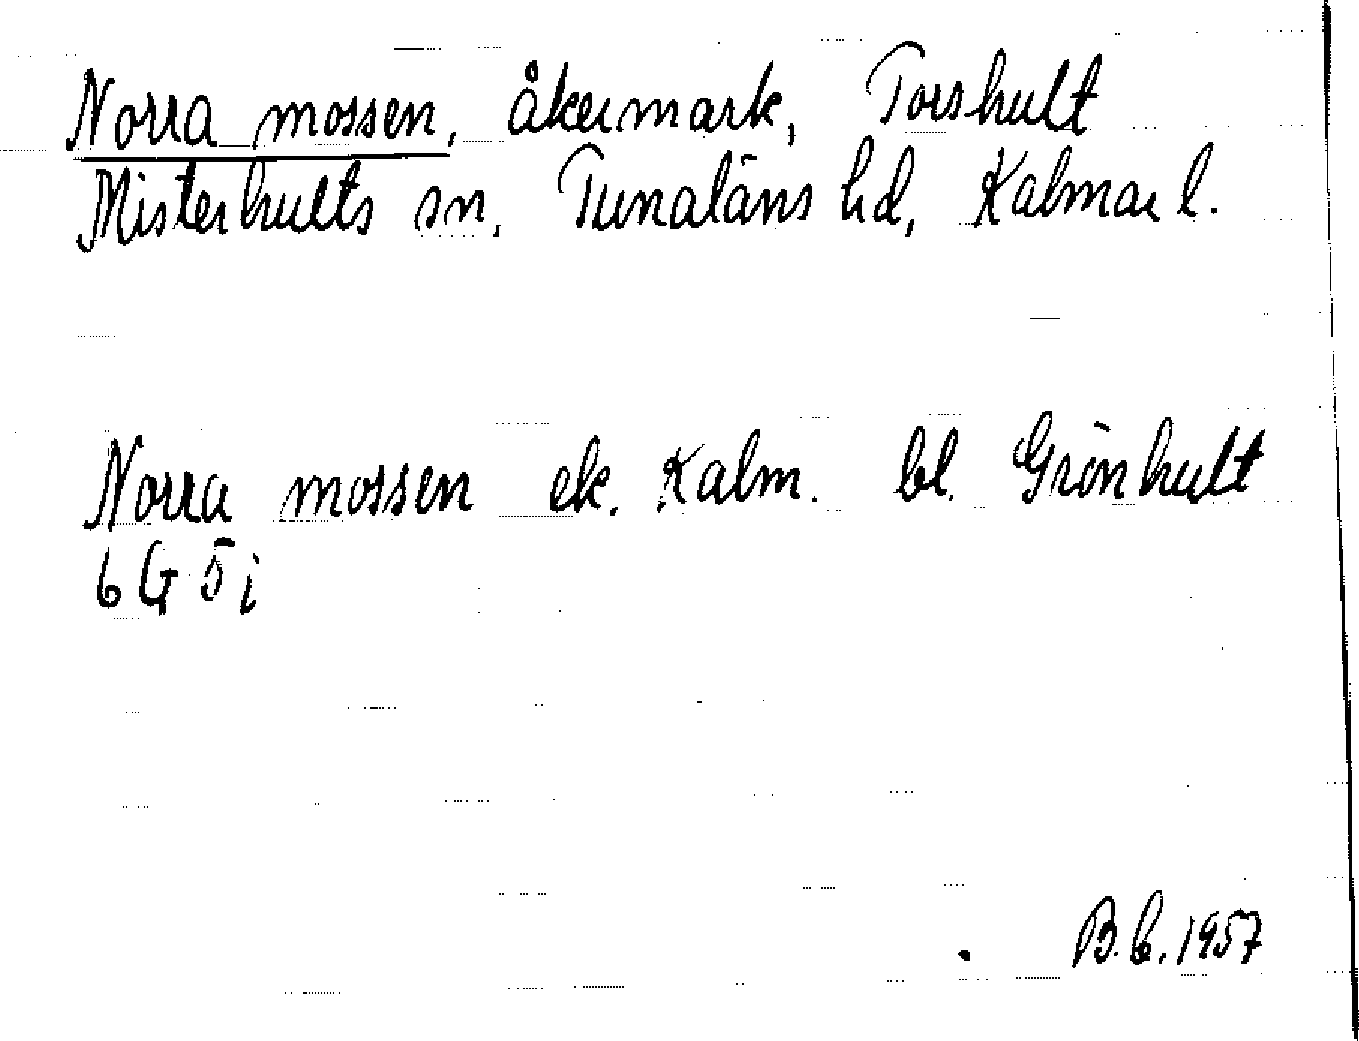 Norra mossen, åkermark, Torshult
Misterhults sn, Tunaläns hd, Kalmar l.
Norra mossen ek. Kalm. bl. Grönhult
6 G 5 i
B.C. 1957